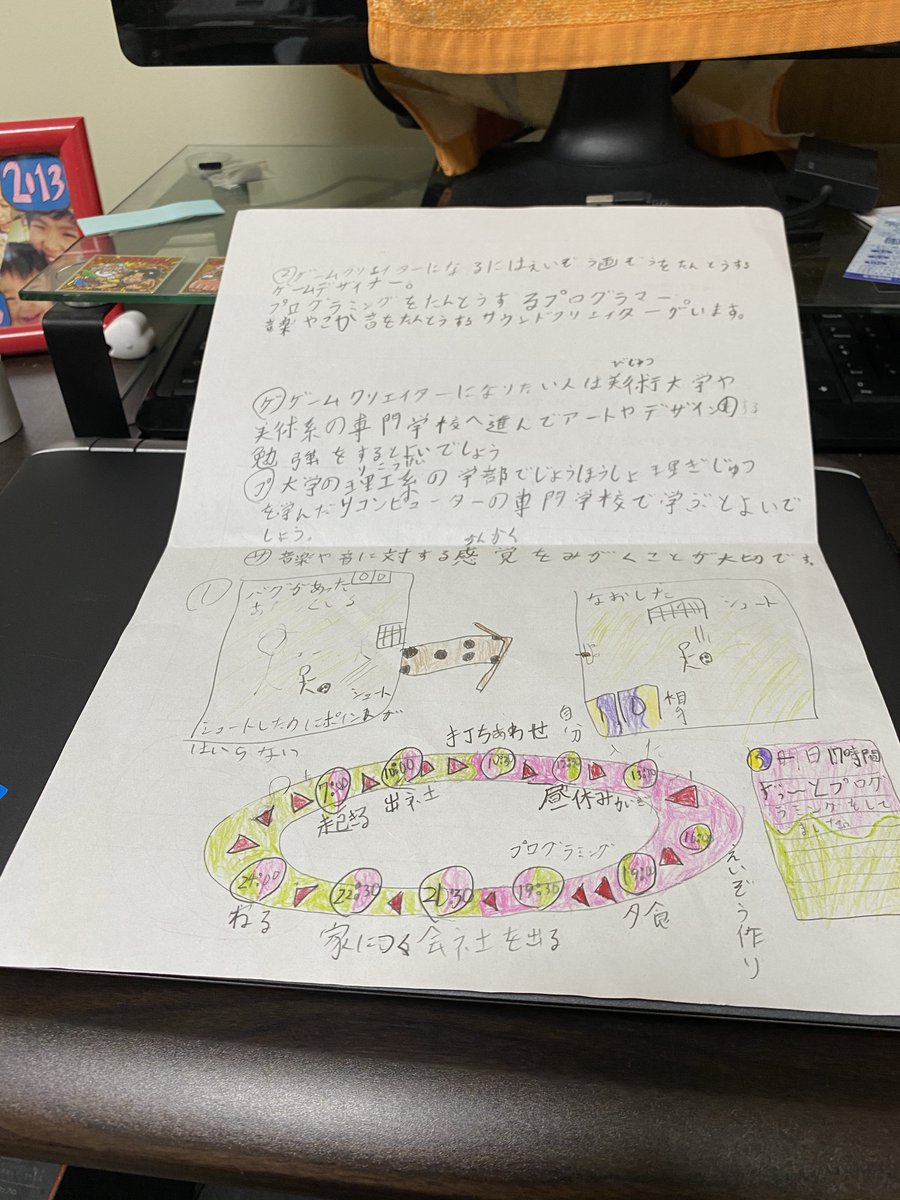 2013
②ゲームクリエイターになるにはえいぞう画ぞうをたんとうする
ゲームデザイナー。
プログラミングをたんとうするプログラマー。
音楽やこか音をたんとうするサウンドクリエイターがいます。
びじゅつ
㋘ゲームクリエイターになりたい人は美術大学や
美術系の専門学校へ進んでアートやデザイン
勉強をするとよいでしょう
りこうけい
㋫大学の理工系の学部でじょうほうしょ理ぎじゅつ
を学んだりコンピューターの専門学校で学ぶとよいで
しょう。
かんかく
㋚音楽や音に対する感覚をみがくことが大切です。
①
バグがあった
00
シュート
シュートしたのにポイントが
はいらない
なおした
シュート
10
自分
相
入った
打ちあわせ
7:00
10:00
10:30
12:00
13:00
起きる
出社
昼休み
16:00
えいぞう作り
プログラミング
24:00
22:30
21:30
19:30
19:00
ねる
家につく
会社を出る
夕食
日17時間
ず〜とプログ
ラミングをして
ました